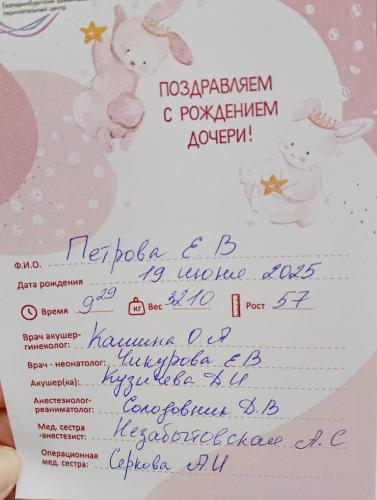 Екатеринбургский
перинатальный центр
ПОЗДРАВЛЯЕМ
С РОЖДЕНИЕМ
ДОЧЕРИ!
Ф.И.О. Петрова Е В
Дата рождения 19 июня 2025
Время 9 29 кг Вес 3210 Рост 57
Врач акушер-
гинеколог: Кашина О.А
Врач - неонатолог: Чикурова Е.В
Акушер(ка): Кузичева Д.И
Анестезиолог-
реаниматолог: Солодовник Д.В
Мед. сестра
-анестезист: Незабытовская А.С
Операционная
мед. сестра: Серкова А.И